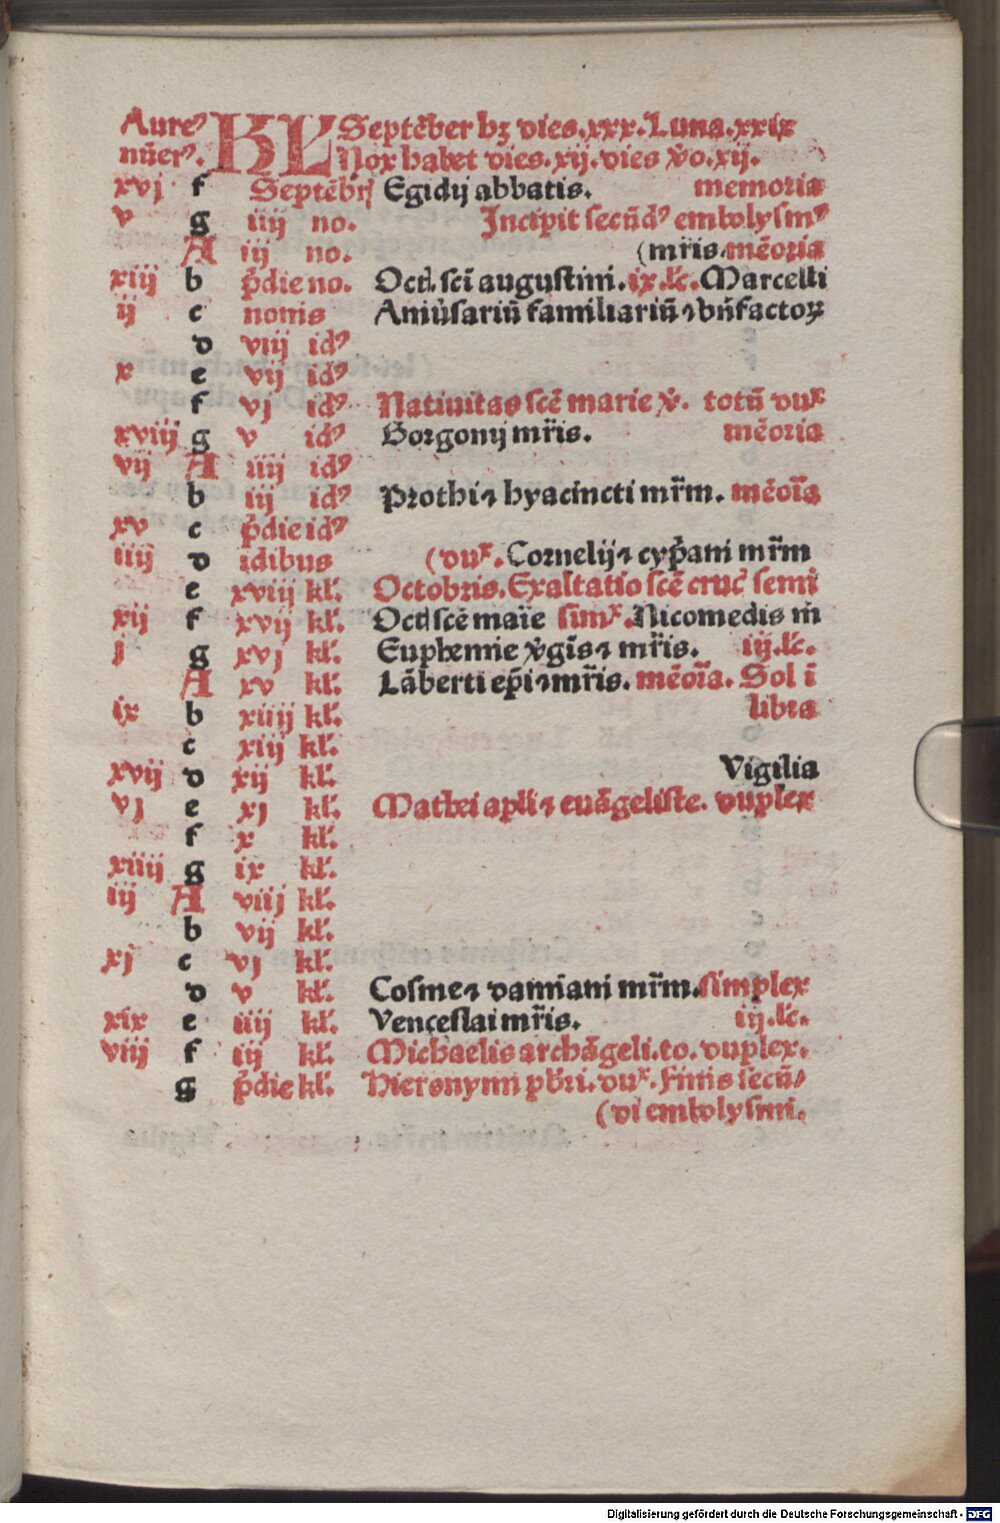 Aureꝰ KL Septēber hꝫ dies.xxx.Luna.xxix
nūerꝰ. Nox habet dies.xij. dies v̊o.xij.
xvj f Septēbrꝭ Egidij abbatis. memoria
v g iiij no. Incipit secūdꝰ embolysmꝰ
A iij no. (mr̄is.mēoria
xiij b p̄die no. Oct. scī augustini.ix.lc̄. Marcelli
ij c nonis Aniūsariū familiariū ⁊ bn̄factoꝝ
d viij idꝰ
x e vij idꝰ
f vj idꝰ Natiuitas scē marie v̄. totū duˣ
xviij g v idꝰ Gorgonij mr̄is. mēoria
vij A iiij idꝰ
b iij idꝰ Prothi ⁊ hyacincti mr̄m. mēoīa
xv c p̄die idꝰ
iiij d idibus (duˣ. Cornelij ⁊ cyp̄ani mr̄m
e xviij kl̄. Octobris. Exaltatio scē cruc̄ semi
xij f xvij kl̄. Oct scē maīe simˣ. Nicomedis m̄
j g xvj kl̄. Euphemie v̄gīs ⁊ mr̄is. iij.lc̄.
A xv kl̄. Lāberti ep̄i ⁊ mr̄is. mēoīa. Sol ī
ix b xiiij kl̄. libra
c xiij kl̄.
xvij d xij kl̄. Vigilia
vj e xj kl̄. Mathei apl̄i ⁊ euāgeliste. duplex
f x kl̄.
xiiij g ix kl̄.
iij A viij kl̄.
b vij kl̄.
xj c vj kl̄.
d v kl̄. Cosme ⁊ damiani mr̄m. simplex
xix e iiij kl̄. Venceslai mr̄is. iij.lc̄.
viij f iij kl̄. Michaelis archāgeli.to. duplex.
g p̄die kl̄. Hieronymi pb̄ri. duˣ. Finis secū⸗
(di embolysmi.
Digitalisierung gefördert durch die Deutsche Forschungsgemeinschaft - DFG